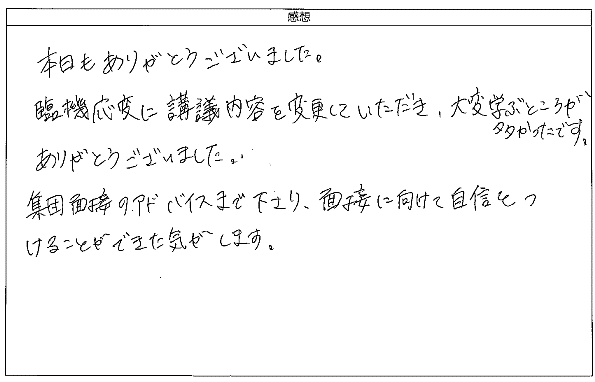 感想
本日もありがとうございました。
臨機応変に講議内容を変更していただき、大変学ぶところが
多かったです。
ありがとうございました。
集団面接のアドバイスまで下さり、面接に向けて自信をつ
けることができた気がします。